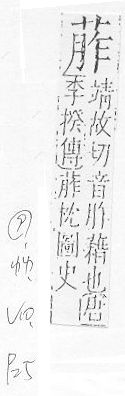 葄
靖故切音胙藉也唐
季揆傳葄枕圖史
艸.
V10.
P25